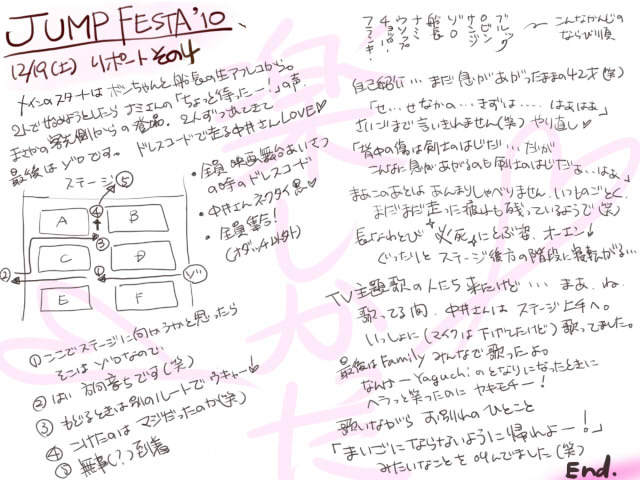 JUMP FESTA'10
12/19(土) リポート その4
メインのスタートは ボンちゃんと船長の生アフレコから。
2人で始めようとしたら ナミさんの「ちょっと待ったー!」の声
まさかの客先側からの登場。2人ずつ出てきて
最後はゾロです。ドレスコードで走る中井さんLOVE♡
・全員 映画舞台あいさつの時のドレスコード
・中井さんネクタイ黒♡
・全員集合!
(オダッチ以外)
ステージ
⑤
A
④
B
③
C
D
②
①
ゾ
E
F
①ここでステージに向かうかと思ったら
そこは ゾロなので、
②はい 方向音痴です(笑)
③もどるときは別のルートで ウキャー!
④こけたのは マジだったのか(笑)
⑤無事(?)到着
ブルック
サンジ
ゾロ
船長
ナミ
ウソップ
チョッパー
フランキー
こんなかんじの
ならび順
自己紹介… まだ 息があがったままの42才(笑)
「せ…せなかの…きずは……はぁはぁ」
さいごまで言いきれません(笑) やり直し♡
「背中の傷は剣士のはじだ!…だが
こんなに息があがるのも剣士のはじだぁ…はぁ」
まぁこのあとは あんまりしゃべりません。いつものごとく、
まだまだ 走った疲れも 残っているようで(笑)
長なわとび 必死にとぶ姿、オーエン!
ぐったりと ステージ後方の階段に
TV主題歌の人たち 来たけど… まぁ、ね、
歌ってる間、中井さんは ステージ上手へ。
いっしょに(マイクは下げてたけど) 歌ってました。
最後はfamily みんなで歌ったよ。
なんか―Yaguchiのとなりになったときに
ヘラっと笑ったのに ヤキモチー!
歌いながら お別れのひとこと
「まいごにならないように帰れよー!」
みたいなことを 叫んでました(笑)
End.
楽しかった